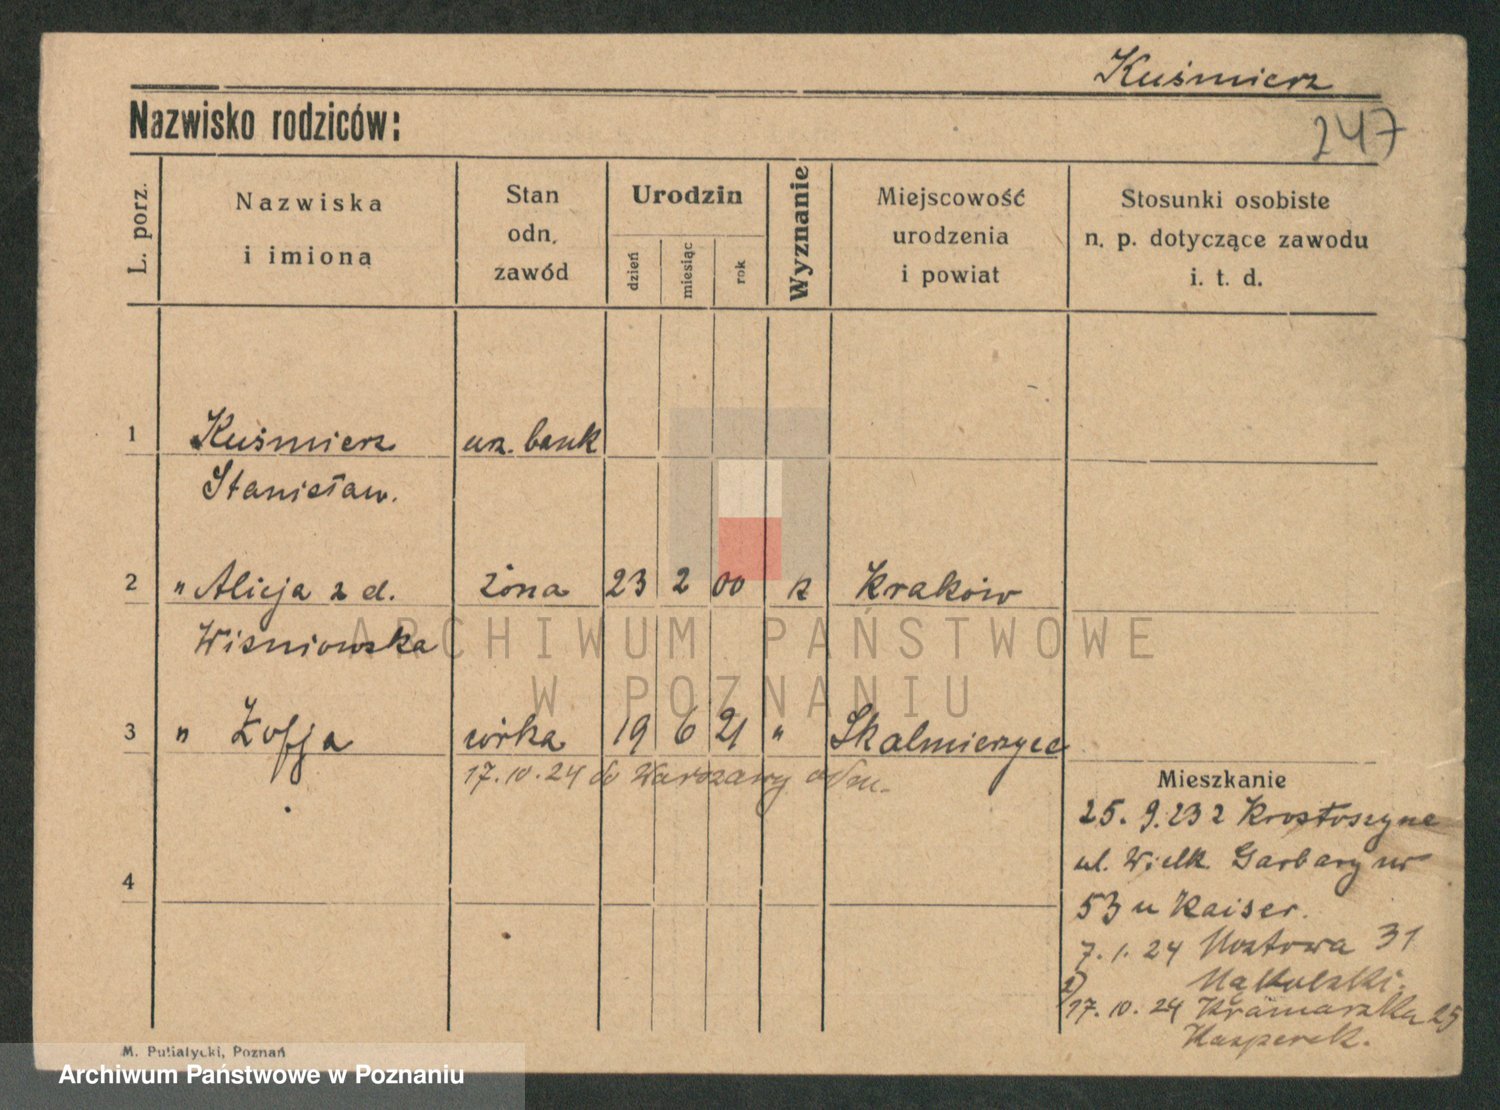 Kuśmierz
Nazwisko rodziców:
247
L. porz.
Nazwiska
i imiona
Stan
odn.
zawód
Urodzin
dzień
miesiąc
rok
Wyznanie
Miejscowość
urodzenia
i powiat
Stosunki osobiste
n. p. dotyczące zawodu
i. t. d.
1 Kuśmierz urz. bank
Stanisław.
2 " Alicja z d. żona 23 2 00 k Kraków
Wiśniowska
ARCHIWUM PAŃSTWOWE
W POZNANIU
3 " Zofja córka 19 6 21 " Skalmierzyce
17.10.24 do Warszawy
Mieszkanie
25. 9. 23 z Krotoszyna
ul. Wielk. Garbary nr
53 u Kaiser.
7. 1. 24 31
4
2)
17. 10. 24 Kramarska 25
Kasperek.
M. Putiatycki, Poznań
Archiwum Państwowe w Poznaniu